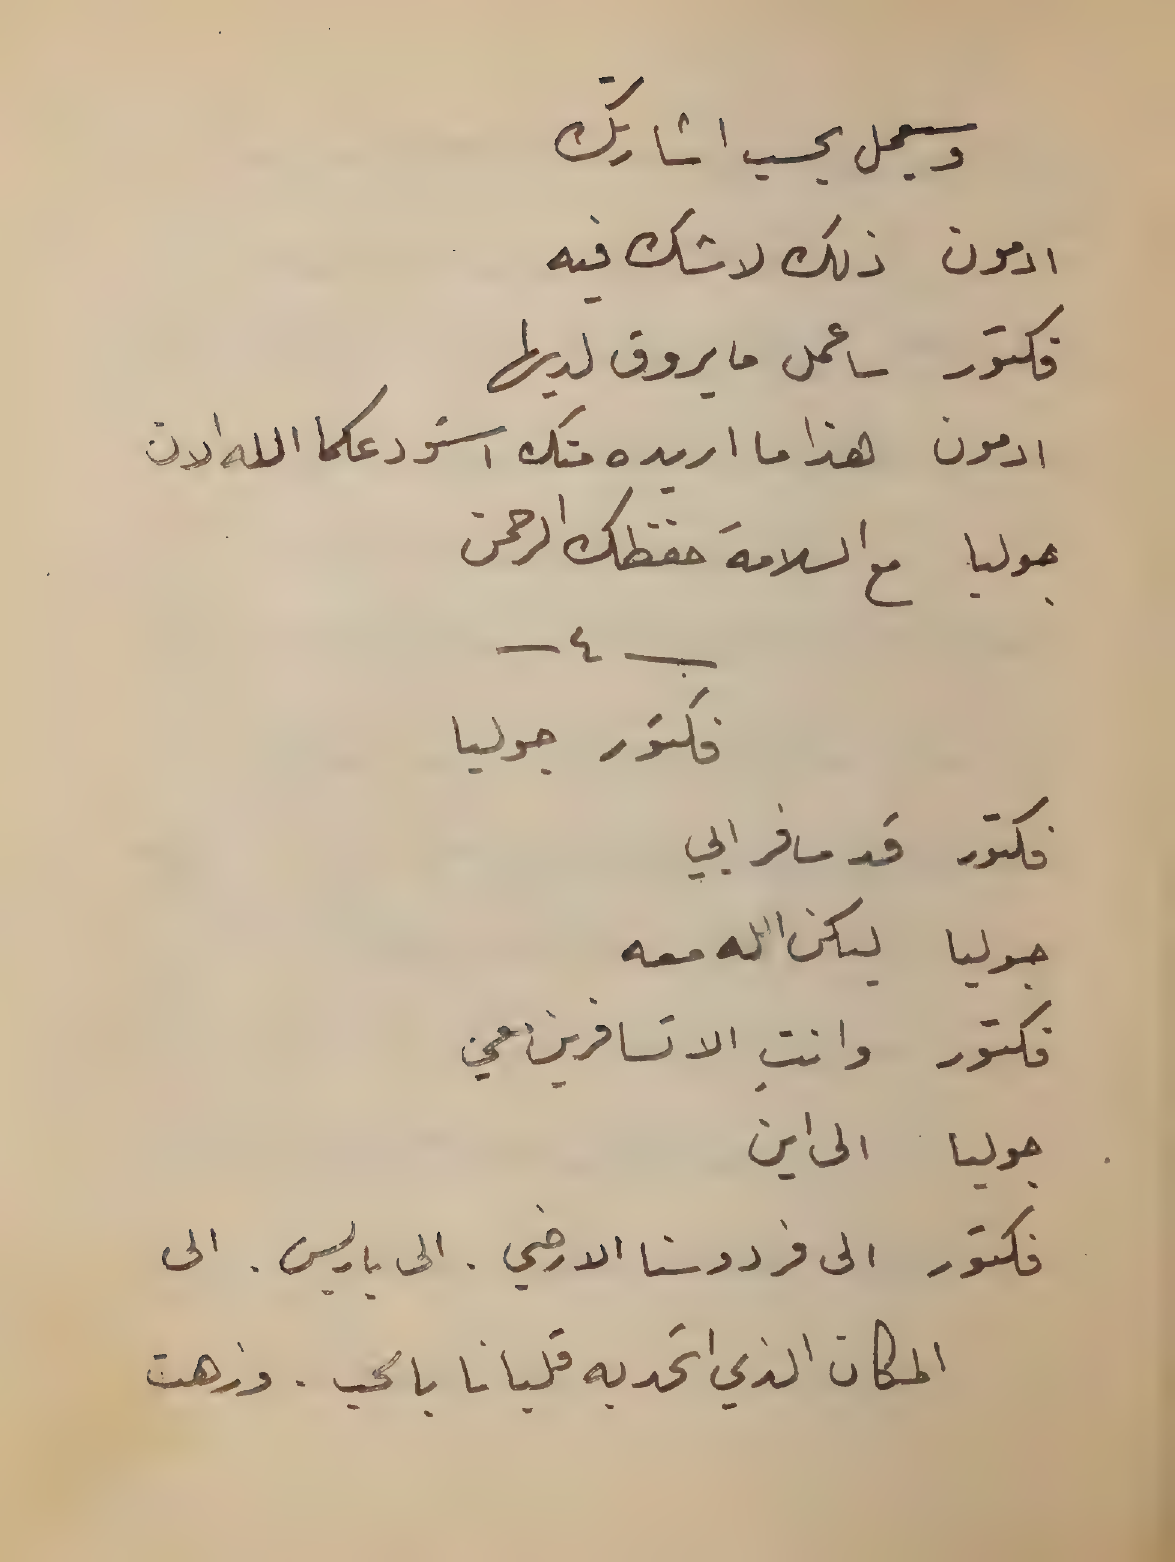 وسيعمل بحسب اشارتك
ادمون ذلك لا شك فيه
فكتور ساعمل ما يروق لديها
ادمون هذا ما اريده منك استودعكما الله الان
جوليا مع السلامة حفظك الرحمن
— ٤ —
فكتور جوليا
فكتور قد سافر ابي
جوليا ليكن الله معه
فكتور وانتِ الا تسافرين معي
جوليا الى اين
فكتور الى فردوسنا الارضي . الى باريس . الى
المكان الذي اتحد به قلبانا بالحب . وزهت